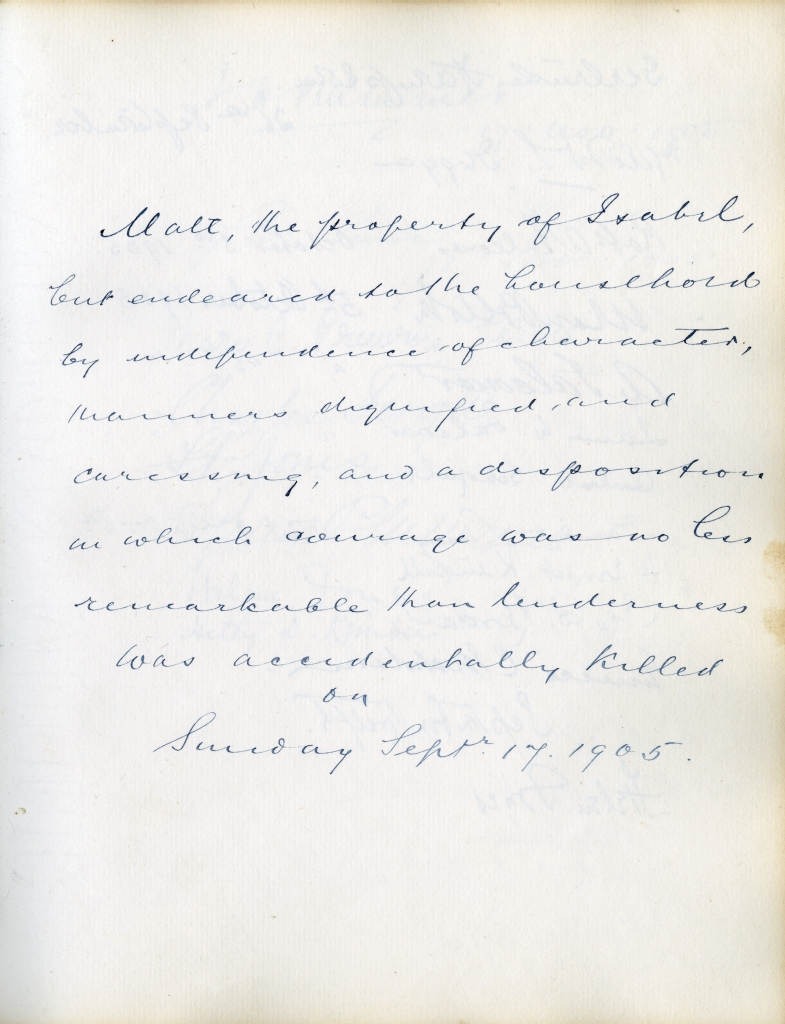 Matt, the property of Isabel,
but endeared to the household
by independence of character,
manners dignified and
caressing, and a disposition
in which courage was no less
remarkable than tenderness
was accidentally killed
on
Sunday Septr. 17. 1905.